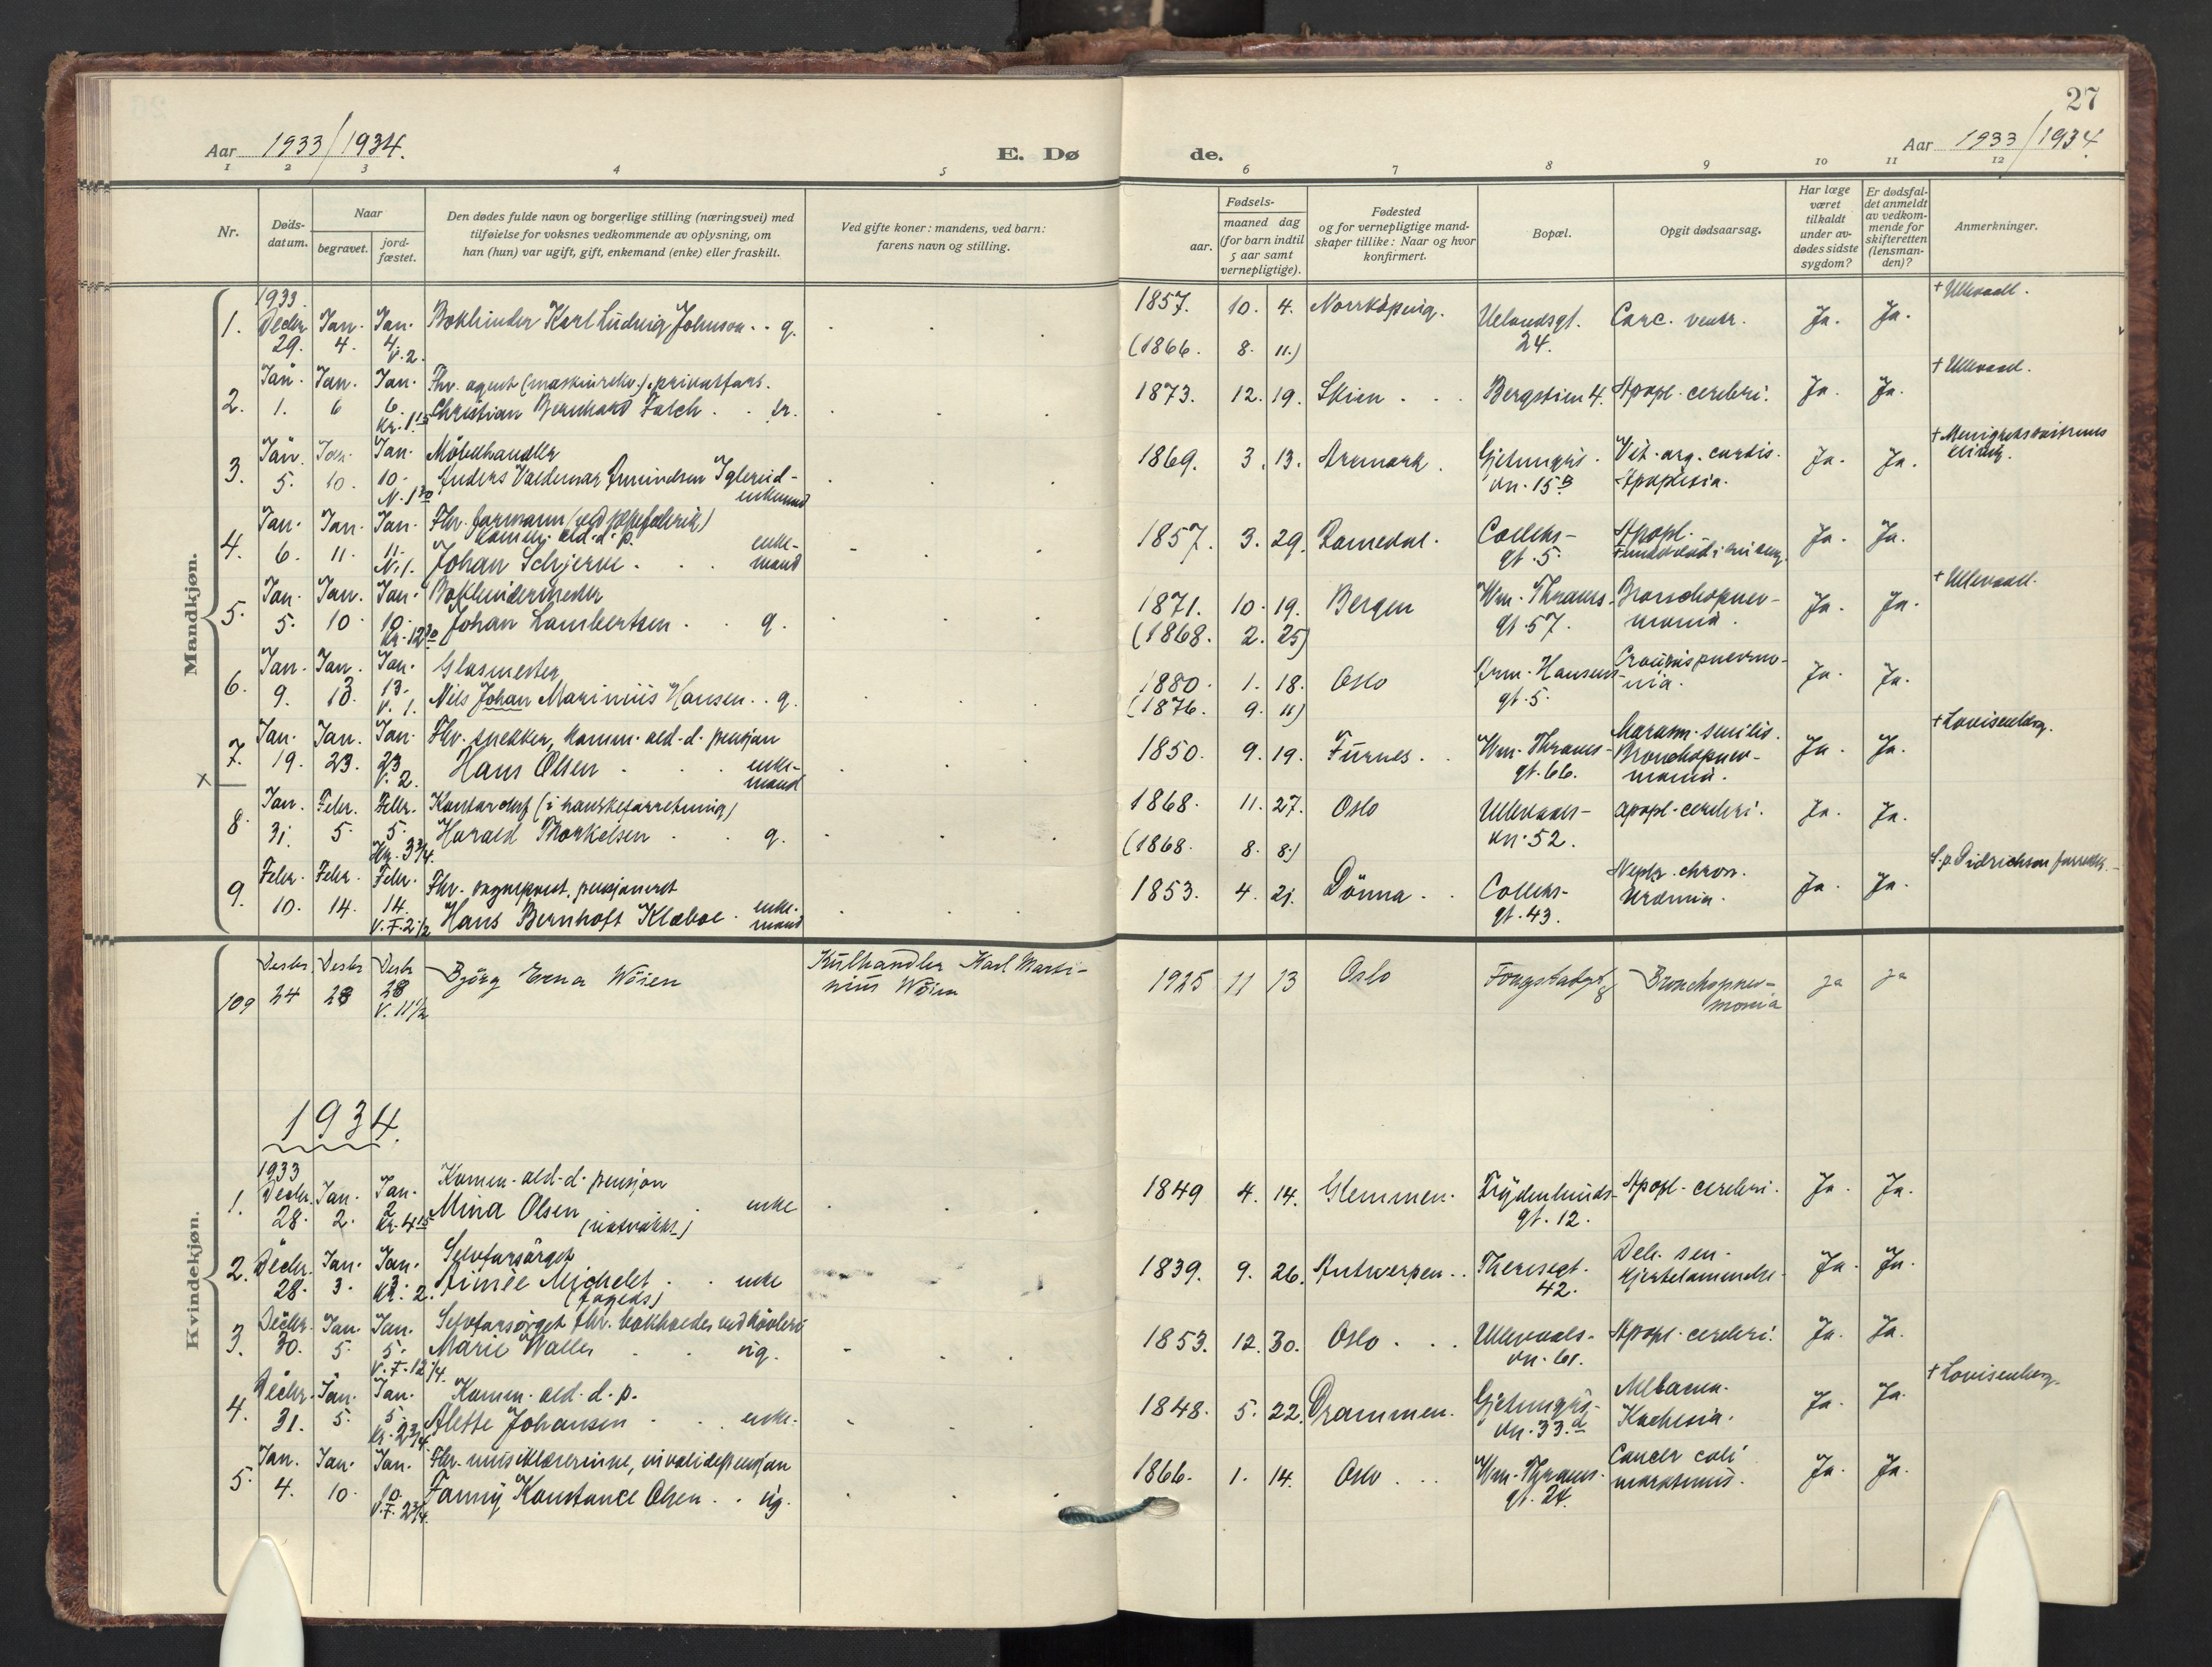 27
Aar 1933/1934.
E. Dø
de.
Aar 1933/1934.
1 2 3 4 5 6 7 8 9 10 11 12
Nr.
Døds-
datum.
Naar
begravet.
jord-
fæstet.
Den dødes fulde navn og borgerlige stilling (næringsvei) med
tilføielse for voksnes vedkommende av oplysning, om
han (hun) var ugift, gift, enkemand (enke) eller fraskilt.
Ved gifte koner: mandens, ved barn:
farens navn og stilling.
Fødsels-
aar.
maaned dag
(for barn indtil
5 aar samt
vernepligtige).
Fødested
og for vernepligtige mand-
skaper tillike: Naar og hvor
konfirmert.
Bopæl.
Opgit dødsaarsag.
Har læge
været
tilkaldt
under av-
dødes sidste
sygdom?
Er dødsfal-
det anmeldt
av vedkom-
mende for
skifteretten
(lensman-
den)?
Anmerkninger.
Mandkjøn.
1933.
1. Decbr. 29. Jan. 4. Jan. 4. V. 2. Bokbinder Karl Ludvig Johnson . . g. 1857. 10. 4. Norrköping. Uelandsgt. 24. Carc. ventr. Ja. Ja. + Ullevaall.
(1866. 8. 11.)
2. Jan. 1. Jan. 6 Jan. 6. Kr. 1 15 Fhv. agent (maskinrekv.), privatfors.
Christian Bernhard Falch . . er. 1873. 12. 19. Skien . . . Bergstien 4. Apopl. cerebri. Ja. Ja. + Ullevaal.
3. Jan. 5. Jan. 10. Jan. 10. N. 1 30 Møbelhandler
Anders Valdemar Amundsen Iglerud - enkemand 1869. 3. 13. Aremark. Gjetemyrs- vn. 15 B Vit. org. cordis. Apoplexia. Ja. Ja. + Menighetssøstrenes klinik.
4. Jan. 6. Jan. 11. Jan. 11. N. 1. Fhv. formann (ved pipefabrik)
komm. ald. d. p.
Johan Schjerve . . . enke-
mand 1857. 3. 29. Romedal. Colletts- gt. 5. Apopl. Ja. Ja.
5. Jan. 5. Jan. 10. Jan. 10. Kr. 12 30 Bokbindermester
Johan Lambertsen . . g. 1871. 10. 19. Bergen Wm. Thranes- gt. 57. Bronchopnev-
monia. Ja. Ja. + Ullevaall.
(1868. 2. 25)
6. Jan. 9. Jan. 13. Jan. 13. V. 1. Glasmester
Nils Johan Marinius Hansen . . g. 1880. 1. 18. Oslo Arm. Hansens- gt. 5. Croupøs pnevmo-
nia. Ja. Ja.
(1876. 9. 11)
7. Jan. 19. Jan. 23. Jan. 23. V. 2. Fhv. snekker, komm. ald. d. pensjon
Hans Olsen . . . enke-
mand 1850. 9. 19. Furnes . . Wm. Thranes- gt. 66. Marasm. senilis.
Bronchopnev-
monia. Ja. Ja. + Lovisenberg.
x
8. Jan. 31. Febr. 5. Febr. 5. Kr. 3 3/4. Kontorchef (i hanskeforretning)
Harald Thorkelsen . . g. 1868. 11. 27. Oslo Ullevaals- vn. 52. Apopl. cerebri. Ja. Ja.
(1868. 8. 8.)
9. Febr. 10. Febr. 14. Febr. 14. V. F. 2 1/2 Fhv. sogneprest, pensjonert
Hans Bernhoft Klæboe . enke-
mand 1853. 4. 21. Dönna . . Colletts- gt. 43. Nephr. chron.
Urämia. Ja. Ja. S. p. Didrichsen forrettet.
Kvindekjøn.
109 Desbr 24 Desbr 28 Desbr 28 V. 11 1/2 Bjørg Erna Wöien Kulhandler Karl Marti-
nius Wöien 1925 11 13 Oslo Fougstadsgt 8 Bronchopnev-
monia ja ja
1934.
1933
1. Decbr. 28. Jan. 2. Jan. 2 Kr. 4 15 Komm. ald. d. pensjon
Mina Olsen . enke 1849 4. 14. Glemmen. Frydenlunds- gt. 12. Apopl. cerebri. Ja. Ja.
2. Decbr. 28. Jan. 3. Jan. 3. Kr. 2. Selvforsørget
Aimée Michelet . . enke
(fogeds) 1839. 9. 26. Antwerpen . . Theresegt. 42. Deb. sen.
Hjertelammelse. Ja. Ja.
3. Decbr. 30. Jan. 5. Jan. 5. V. F. 12 1/4. Selvforsørget fhv. bokholder ved høvleri
Marie Waller . . ug. 1853. 12. 30. Oslo . . . Ullevaals- vn. 61. Apopl. cerebri. Ja. Ja.
4. Decbr. 31. Jan. 5. Jan. 5. Kr. 2 3/4 Komm. ald. d. p.
Alette Johansen . . enke. 1848. 5. 22. Drammen. Gjetemyrs- vn. 33. d Melbæna.
Kachexia. Ja. Ja. + Lovisenberg.
5. Jan. 4. Jan. 10. Jan. 10. V. F. 2 3/4. Fhv. musiklærerinne, invalidepensjon
Fanny Konstance Olsen . . ug. 1866. 1. 14. Oslo . . . Wm. Thranes- gt. 24. Cancer coli
marasmus. Ja. Ja.